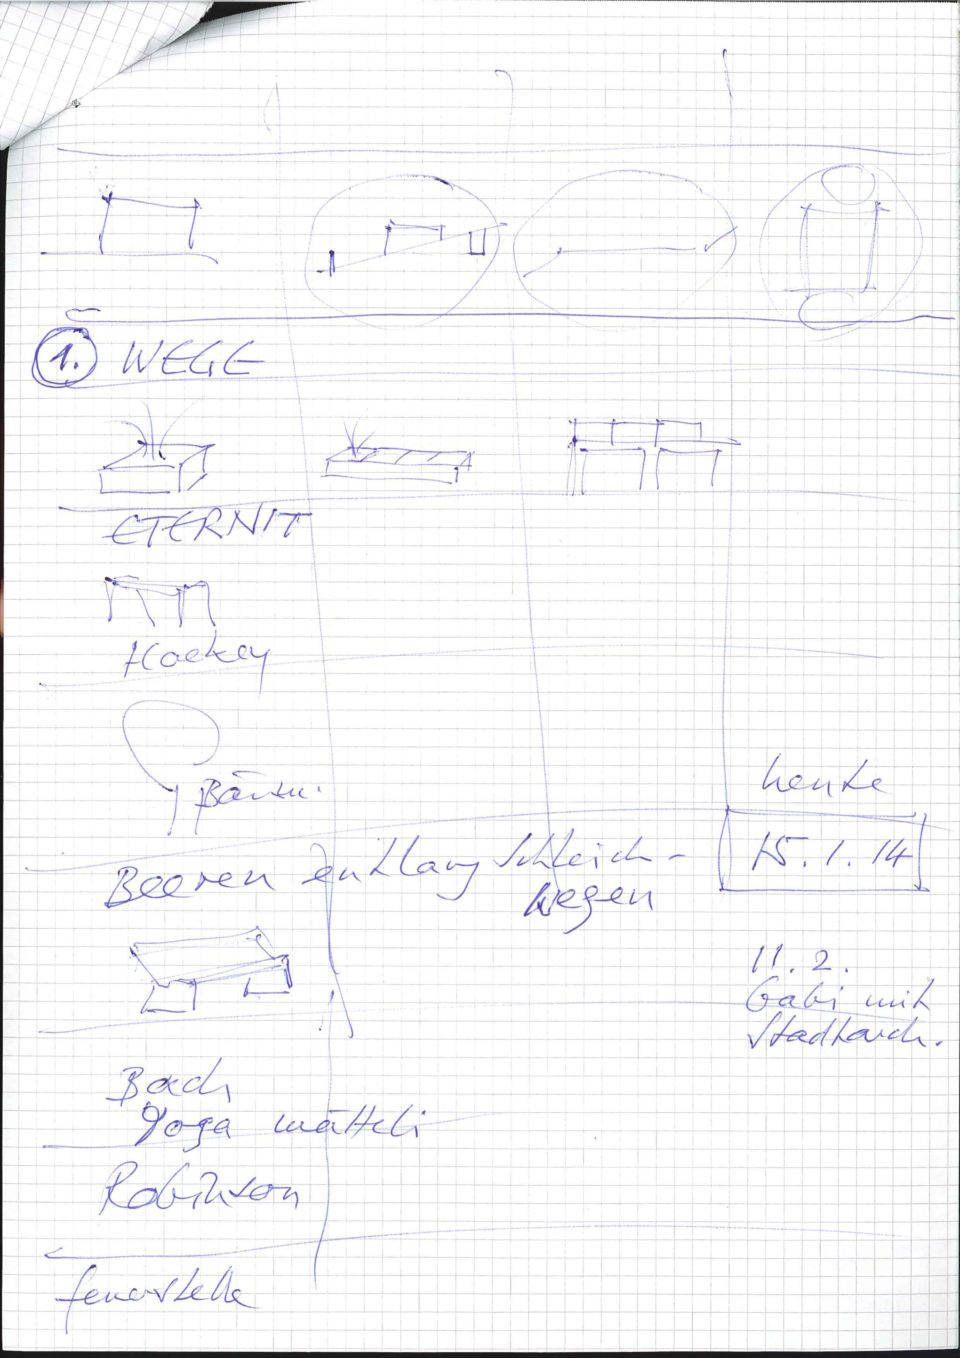 1. WEGE
ETERNIT
Hockey
Bäume.
heute
15.1.14
Beeren entlang Schleich-
wegen
11.2.
Gabi mit
Stadtarch.
Bach
Yoga mätteli
Robinson
feuerstelle